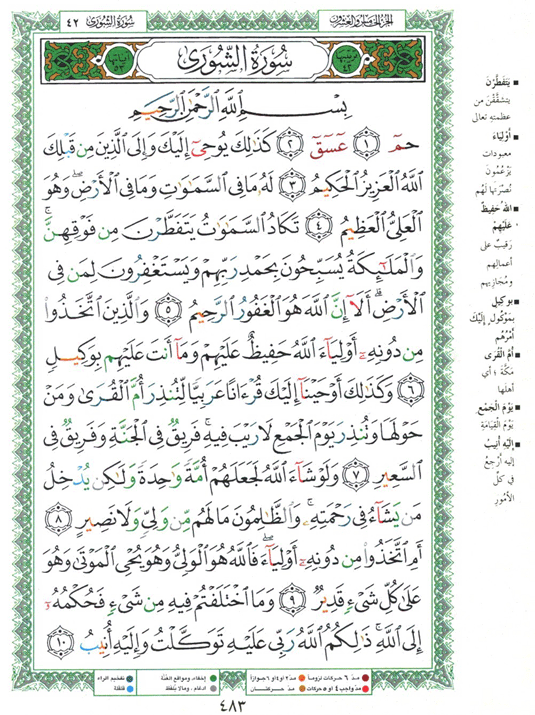 سُورَةُ الشُّورَىٰ ٤٢
الجزء الخامس والعشرون
ترتيبها ٤٢
سُورَةُ الشُّورَىٰ
آياتها ٥٣
بِسْمِ اللَّهِ الرَّحْمَٰنِ الرَّحِيمِ
حمٓ ١ عٓسٓقٓ ٢ كَذَٰلِكَ يُوحِىٓ إِلَيْكَ وَإِلَى الَّذِينَ مِن قَبْلِكَ
اللَّهُ الْعَزِيزُ الْحَكِيمُ ٣ لَهُۥ مَا فِى السَّمَٰوَٰتِ وَمَا فِى الْأَرْضِ ۖ وَهُوَ
الْعَلِىُّ الْعَظِيمُ ٤ تَكَادُ السَّمَٰوَٰتُ يَتَفَطَّرْنَ مِن فَوْقِهِنَّ ۚ
وَالْمَلَٰٓئِكَةُ يُسَبِّحُونَ بِحَمْدِ رَبِّهِمْ وَيَسْتَغْفِرُونَ لِمَن فِى
الْأَرْضِ ۗ أَلَآ إِنَّ اللَّهَ هُوَ الْغَفُورُ الرَّحِيمُ ٥ وَالَّذِينَ اتَّخَذُوا۟
مِن دُونِهِۦٓ أَوْلِيَآءَ اللَّهُ حَفِيظٌ عَلَيْهِمْ وَمَآ أَنتَ عَلَيْهِم بِوَكِيلٍ
٦ وَكَذَٰلِكَ أَوْحَيْنَآ إِلَيْكَ قُرْءَانًا عَرَبِيًّا لِّتُنذِرَ أُمَّ الْقُرَىٰ وَمَنْ
حَوْلَهَا وَتُنذِرَ يَوْمَ الْجَمْعِ لَا رَيْبَ فِيهِ ۚ فَرِيقٌ فِى الْجَنَّةِ وَفَرِيقٌ فِى
السَّعِيرِ ٧ وَلَوْ شَآءَ اللَّهُ لَجَعَلَهُمْ أُمَّةً وَٰحِدَةً وَلَٰكِن يُدْخِلُ
مَن يَشَآءُ فِى رَحْمَتِهِۦ ۚ وَالظَّٰلِمُونَ مَا لَهُم مِّن وَلِىٍّ وَلَا نَصِيرٍ ٨
أَمِ اتَّخَذُوا۟ مِن دُونِهِۦٓ أَوْلِيَآءَ ۖ فَاللَّهُ هُوَ الْوَلِىُّ وَهُوَ يُحْىِ الْمَوْتَىٰ وَهُوَ
عَلَىٰ كُلِّ شَىْءٍ قَدِيرٌ ٩ وَمَا اخْتَلَفْتُمْ فِيهِ مِن شَىْءٍ فَحُكْمُهُۥٓ
إِلَى اللَّهِ ۚ ذَٰلِكُمُ اللَّهُ رَبِّى عَلَيْهِ تَوَكَّلْتُ وَإِلَيْهِ أُنِيبُ ١٠
يَتَفَطَّرْنَ
يتشققن من
عظمته تعالى
أَوْلِيَاءَ
معبودات
يزعمون
نصرتها لهم
اللَّهُ حَفِيظٌ
عَلَيْهِمْ
رقيب على
أعمالهم
ومجازيهم
بِوَكِيلٍ
بموكول إليك
أمرهم
أُمَّ الْقُرَى
مكة ؛ أي
أهلها
يَوْمَ الْجَمْعِ
يوم القيامة
إِلَيْهِ أُنِيبُ
إليه أرجع
في كل
الأمور
مدّ ٦ حركات لزوماً
مدّ ٢ أو ٤ أو ٦ جوازاً
إخفاء، ومواقع الغُنَّة
تفخيم الراء
مدّ واجب ٤ أو ٥ حركات
مدّ حركتان
إدغام، وما لا يُلفظ
قلقلة
٤٨٣